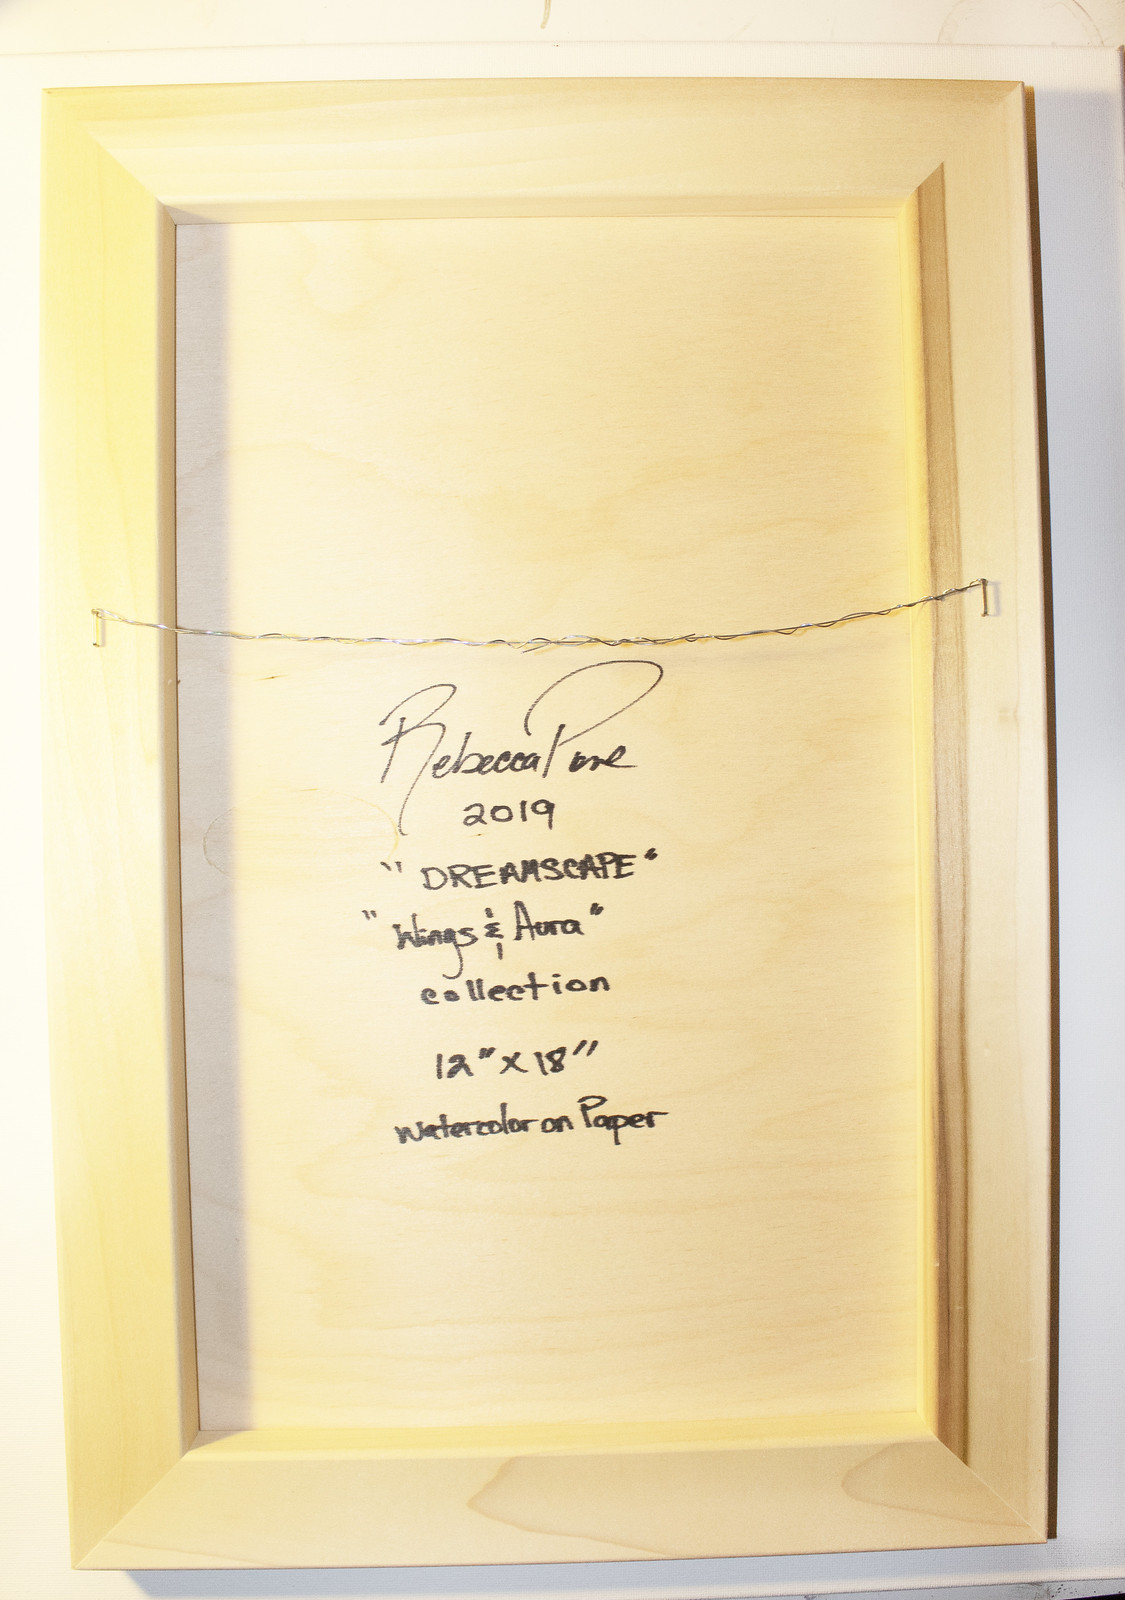 Rebecca
2019
"DREAMSCAPE"
"Wings & Aura"
collection
12" x 18"
watercolor on Paper